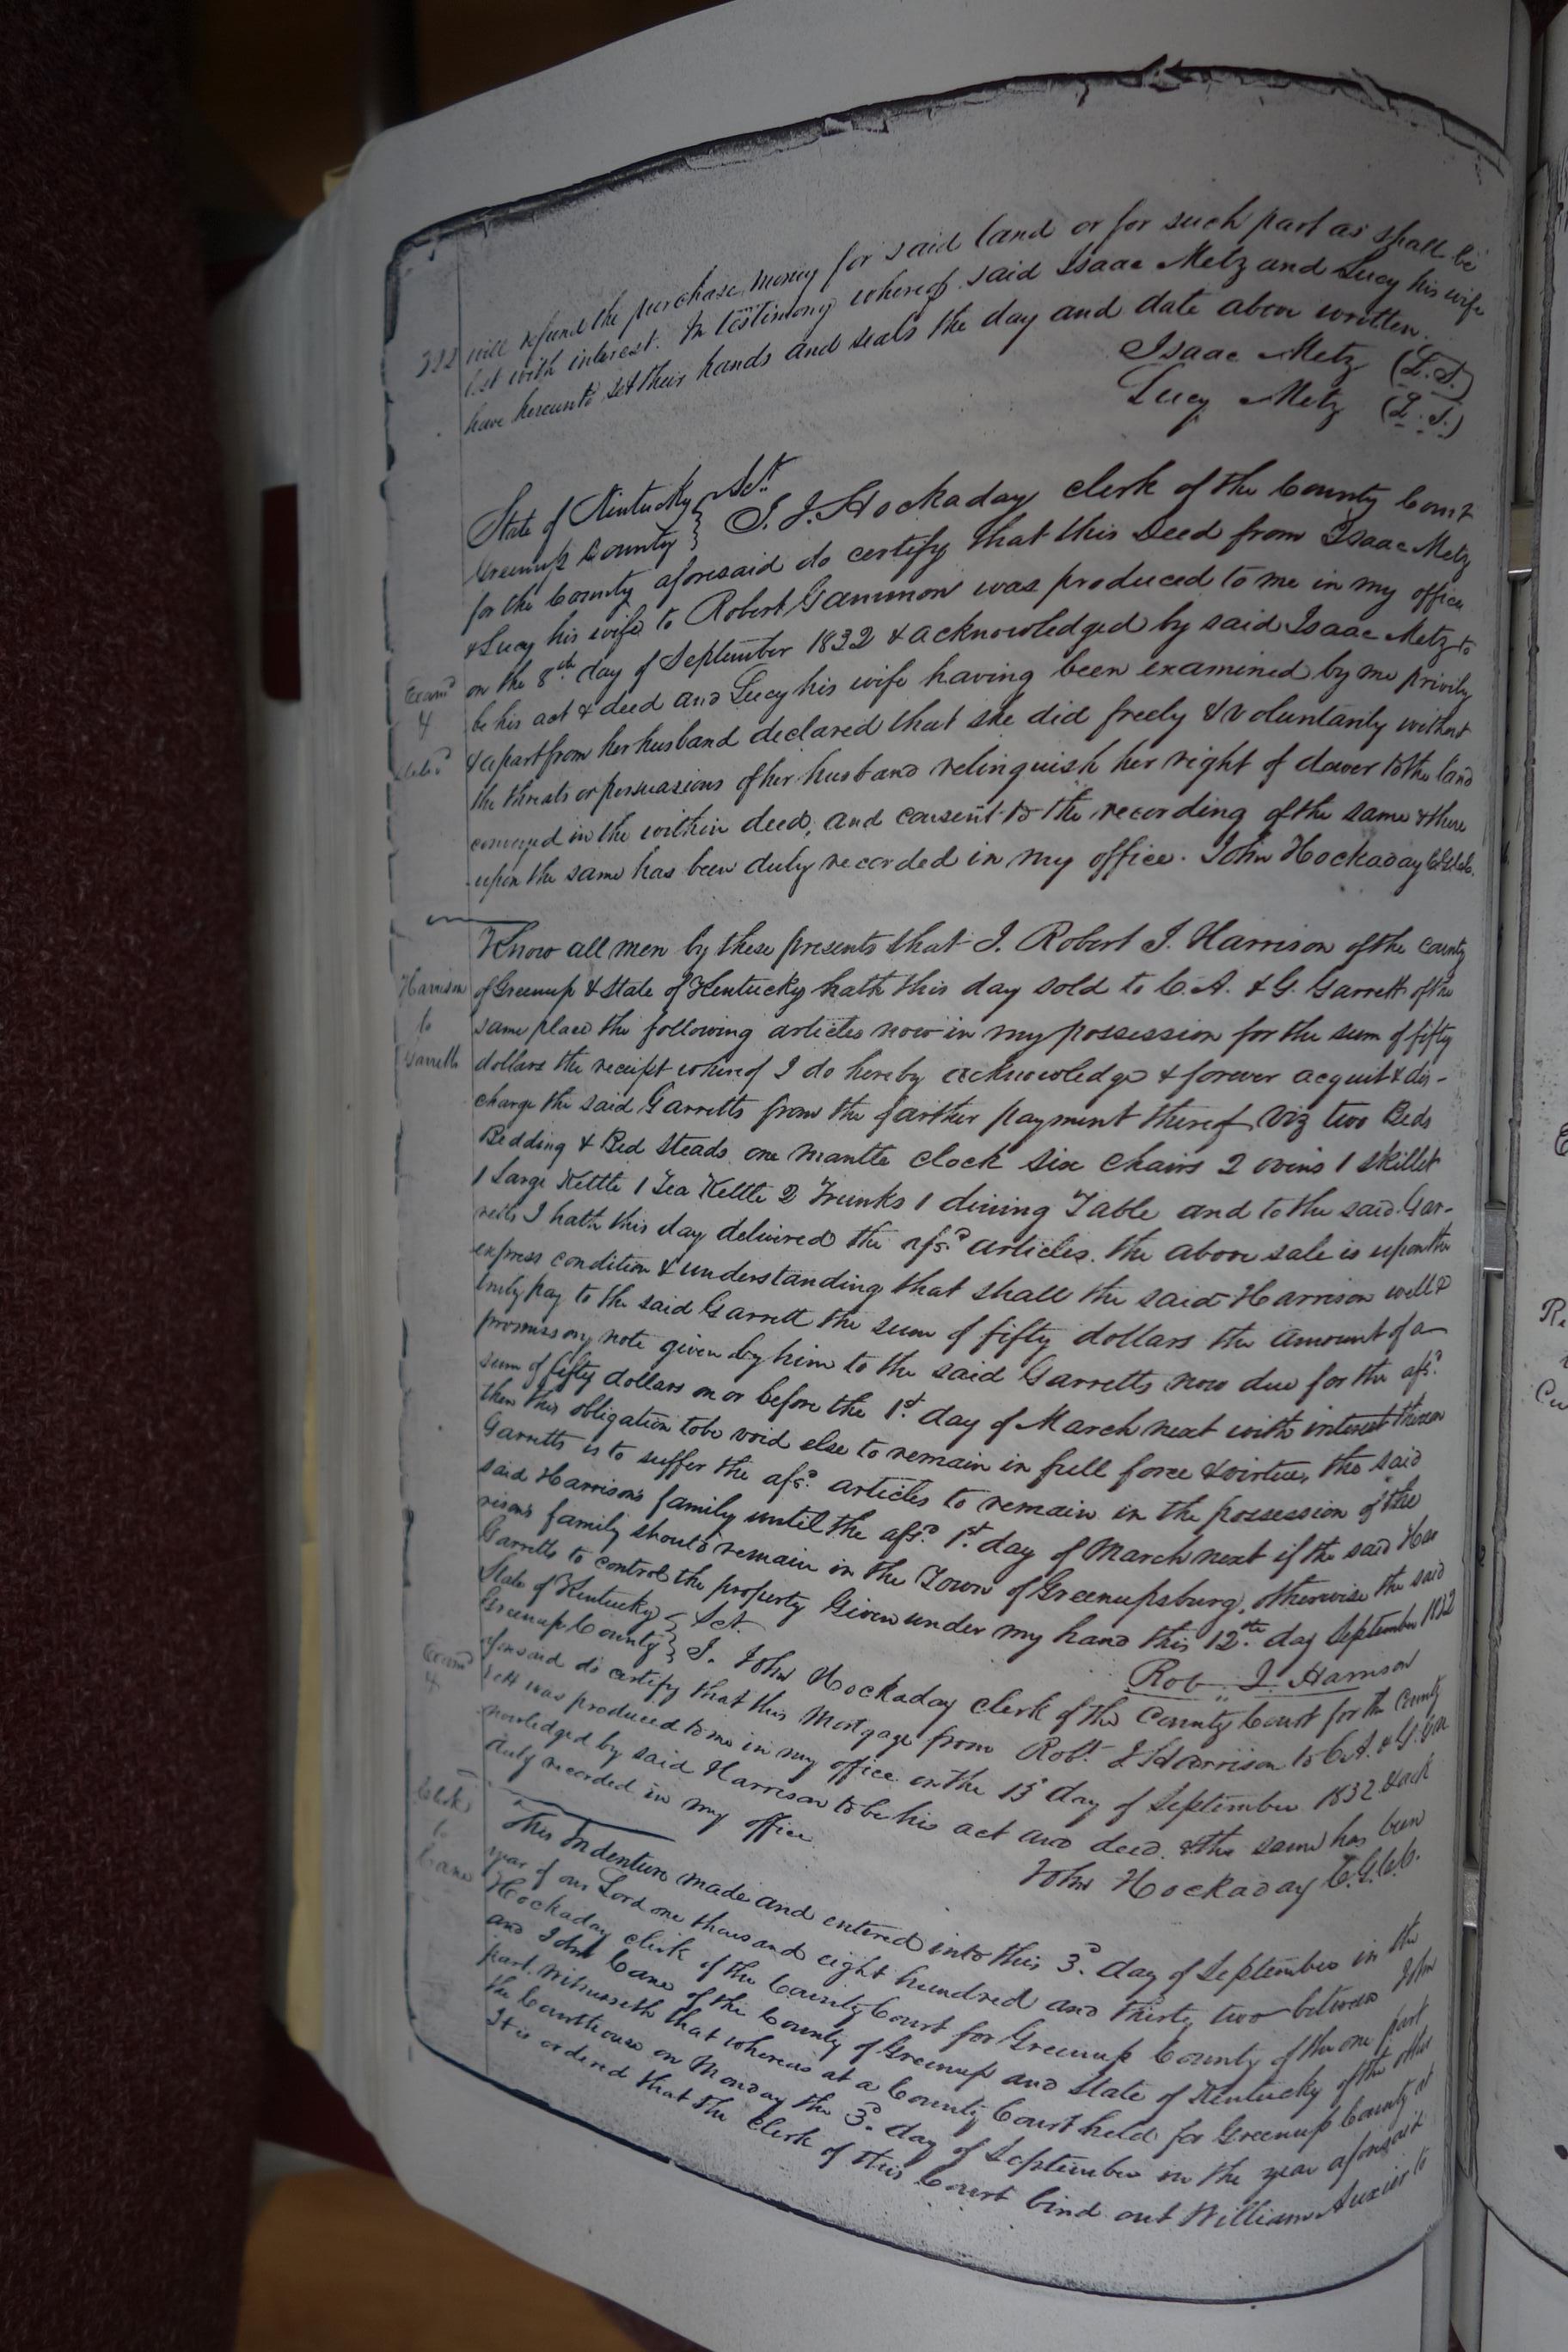 332 will refund the purchase money for said land or for such part as shall be
lost with interest. In testimony whereof said Isaac Metz and Lucy his wife
have hereunto set their hands and seals the day and date above written.
Isaac Metz (L.S.)
Lucy Metz (L.S.)
State of Kentucky } Sct.
Greenup County } I. J. Hockaday clerk of the County Court
for the County aforesaid do certify that this Deed from Isaac Metz
& Lucy his wife to Robert Gammon was produced to me in my office
on the 8th day of September 1832 & acknowledged by said Isaac Metz to
be his act & deed and Lucy his wife having been examined by me privily
& apart from her husband declared that she did freely & voluntarily without
the threats or persuasions of her husband relinquish her right of dower to the land
conveyed in the within deed, and consent to the recording of the same & there
upon the same has been duly recorded in my office. John Hockaday C.G.C.C.
Examd
4
Harrison
to
Garretts
Know all men by these presents that I. Robert J. Harrison of the county
of Greenup & State of Kentucky hath this day sold to C. A. & G. Garrett of the
same place the following articles now in my possession for the sum of fifty
dollars the receipt whereof I do hereby acknowledge & forever acquit & dis-
charge the said Garretts from the farther payment thereof Viz two Beds
Bedding & Bed steads one mantle clock six chairs 2 ovins 1 skillet
1 Large Kettle 1 Tea Kettle 2 Trunks 1 dining Table and to the said Gar-
retts I hath this day delivered the afsd articles. the above sale is upon the
express condition & understanding that shall the said Harrison well &
truly pay to the said Garrett the sum of fifty dollars the amount of a
promissory note given by him to the said Garretts now due for the afsd
sum of fifty dollars on or before the 1st day of March next with interest thereon
then this obligation to be void else to remain in full force & virtue, the said
Garretts is to suffer the afsd articles to remain in the possession of the
said Harrisons family until the afsd 1st day of March next if the said Har
rison's family should remain in the Town of Greenupsburg, otherwise the said
Garretts to control the property Given under my hand this 12th day September 1832
Rob. J. Harrison
State of Kentucky } Sct.
Greenup County } I. John Hockaday clerk of the County Court for the County
aforesaid do certify that this Mortgage from Robt J Harrison to C.A. & G. Gar
rett was produced to me in my office on the 13 day of September 1832 & ack
nowledged by said Harrison to be his act and deed. & the same has been
duly recorded in my office
John Hockaday C.G.C.C.
Examd
4
Clerk
to
Cane
This Indenture made and entered into this 3d day of September in the
year of our Lord one thousand eight hundred and thirty two between John
Hockaday clerk of the County Court for Greenup County of the one part
and John Cane of the County of Greenup and State of Kentucky of the other
part. witnesseth that whereas at a County Court held for Greenup County at
the Courthouse on Monday the 3d day of September in the year aforesaid
It is ordered that the Clerk of this Court bind out William Auxier to